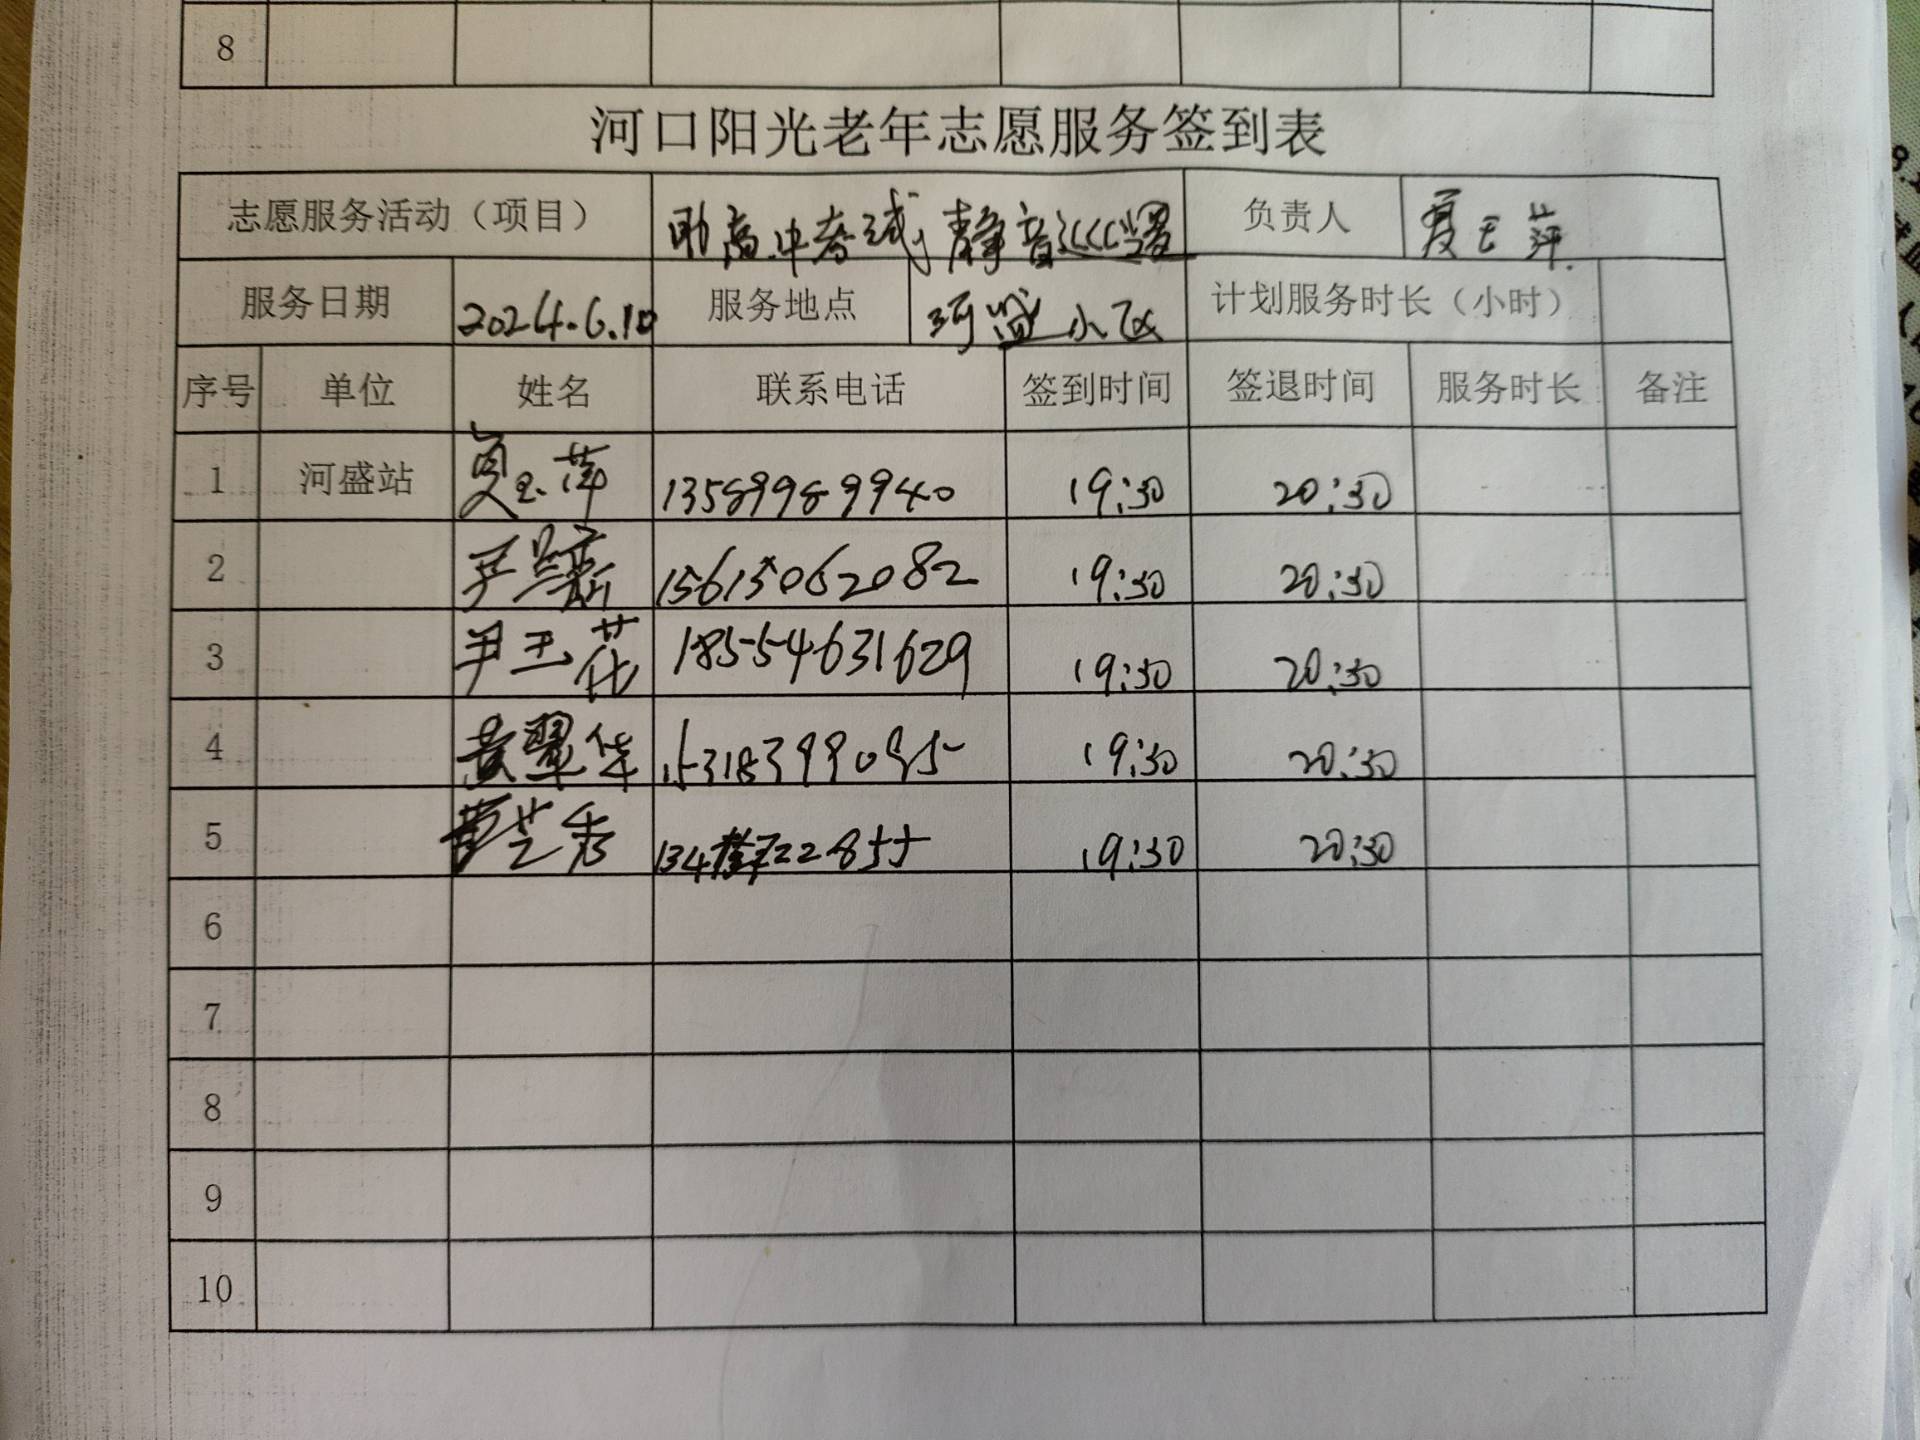 8
河口阳光老年志愿服务签到表
志愿服务活动（项目） 助高中考试静音巡逻 负责人 夏玉萍
服务日期 2024.6.10 服务地点 河盛小区 计划服务时长（小时）
序号 单位 姓名 联系电话 签到时间 签退时间 服务时长 备注
1 河盛站 夏玉萍 13589989940 19:30 20:30
2 15615062082 19:30 20:30
3 尹玉花 18554631629 19:30 20:30
4 黄翠华 19:30 20:30
5 芝秀 19:30 20:30
6
7
8
9
10